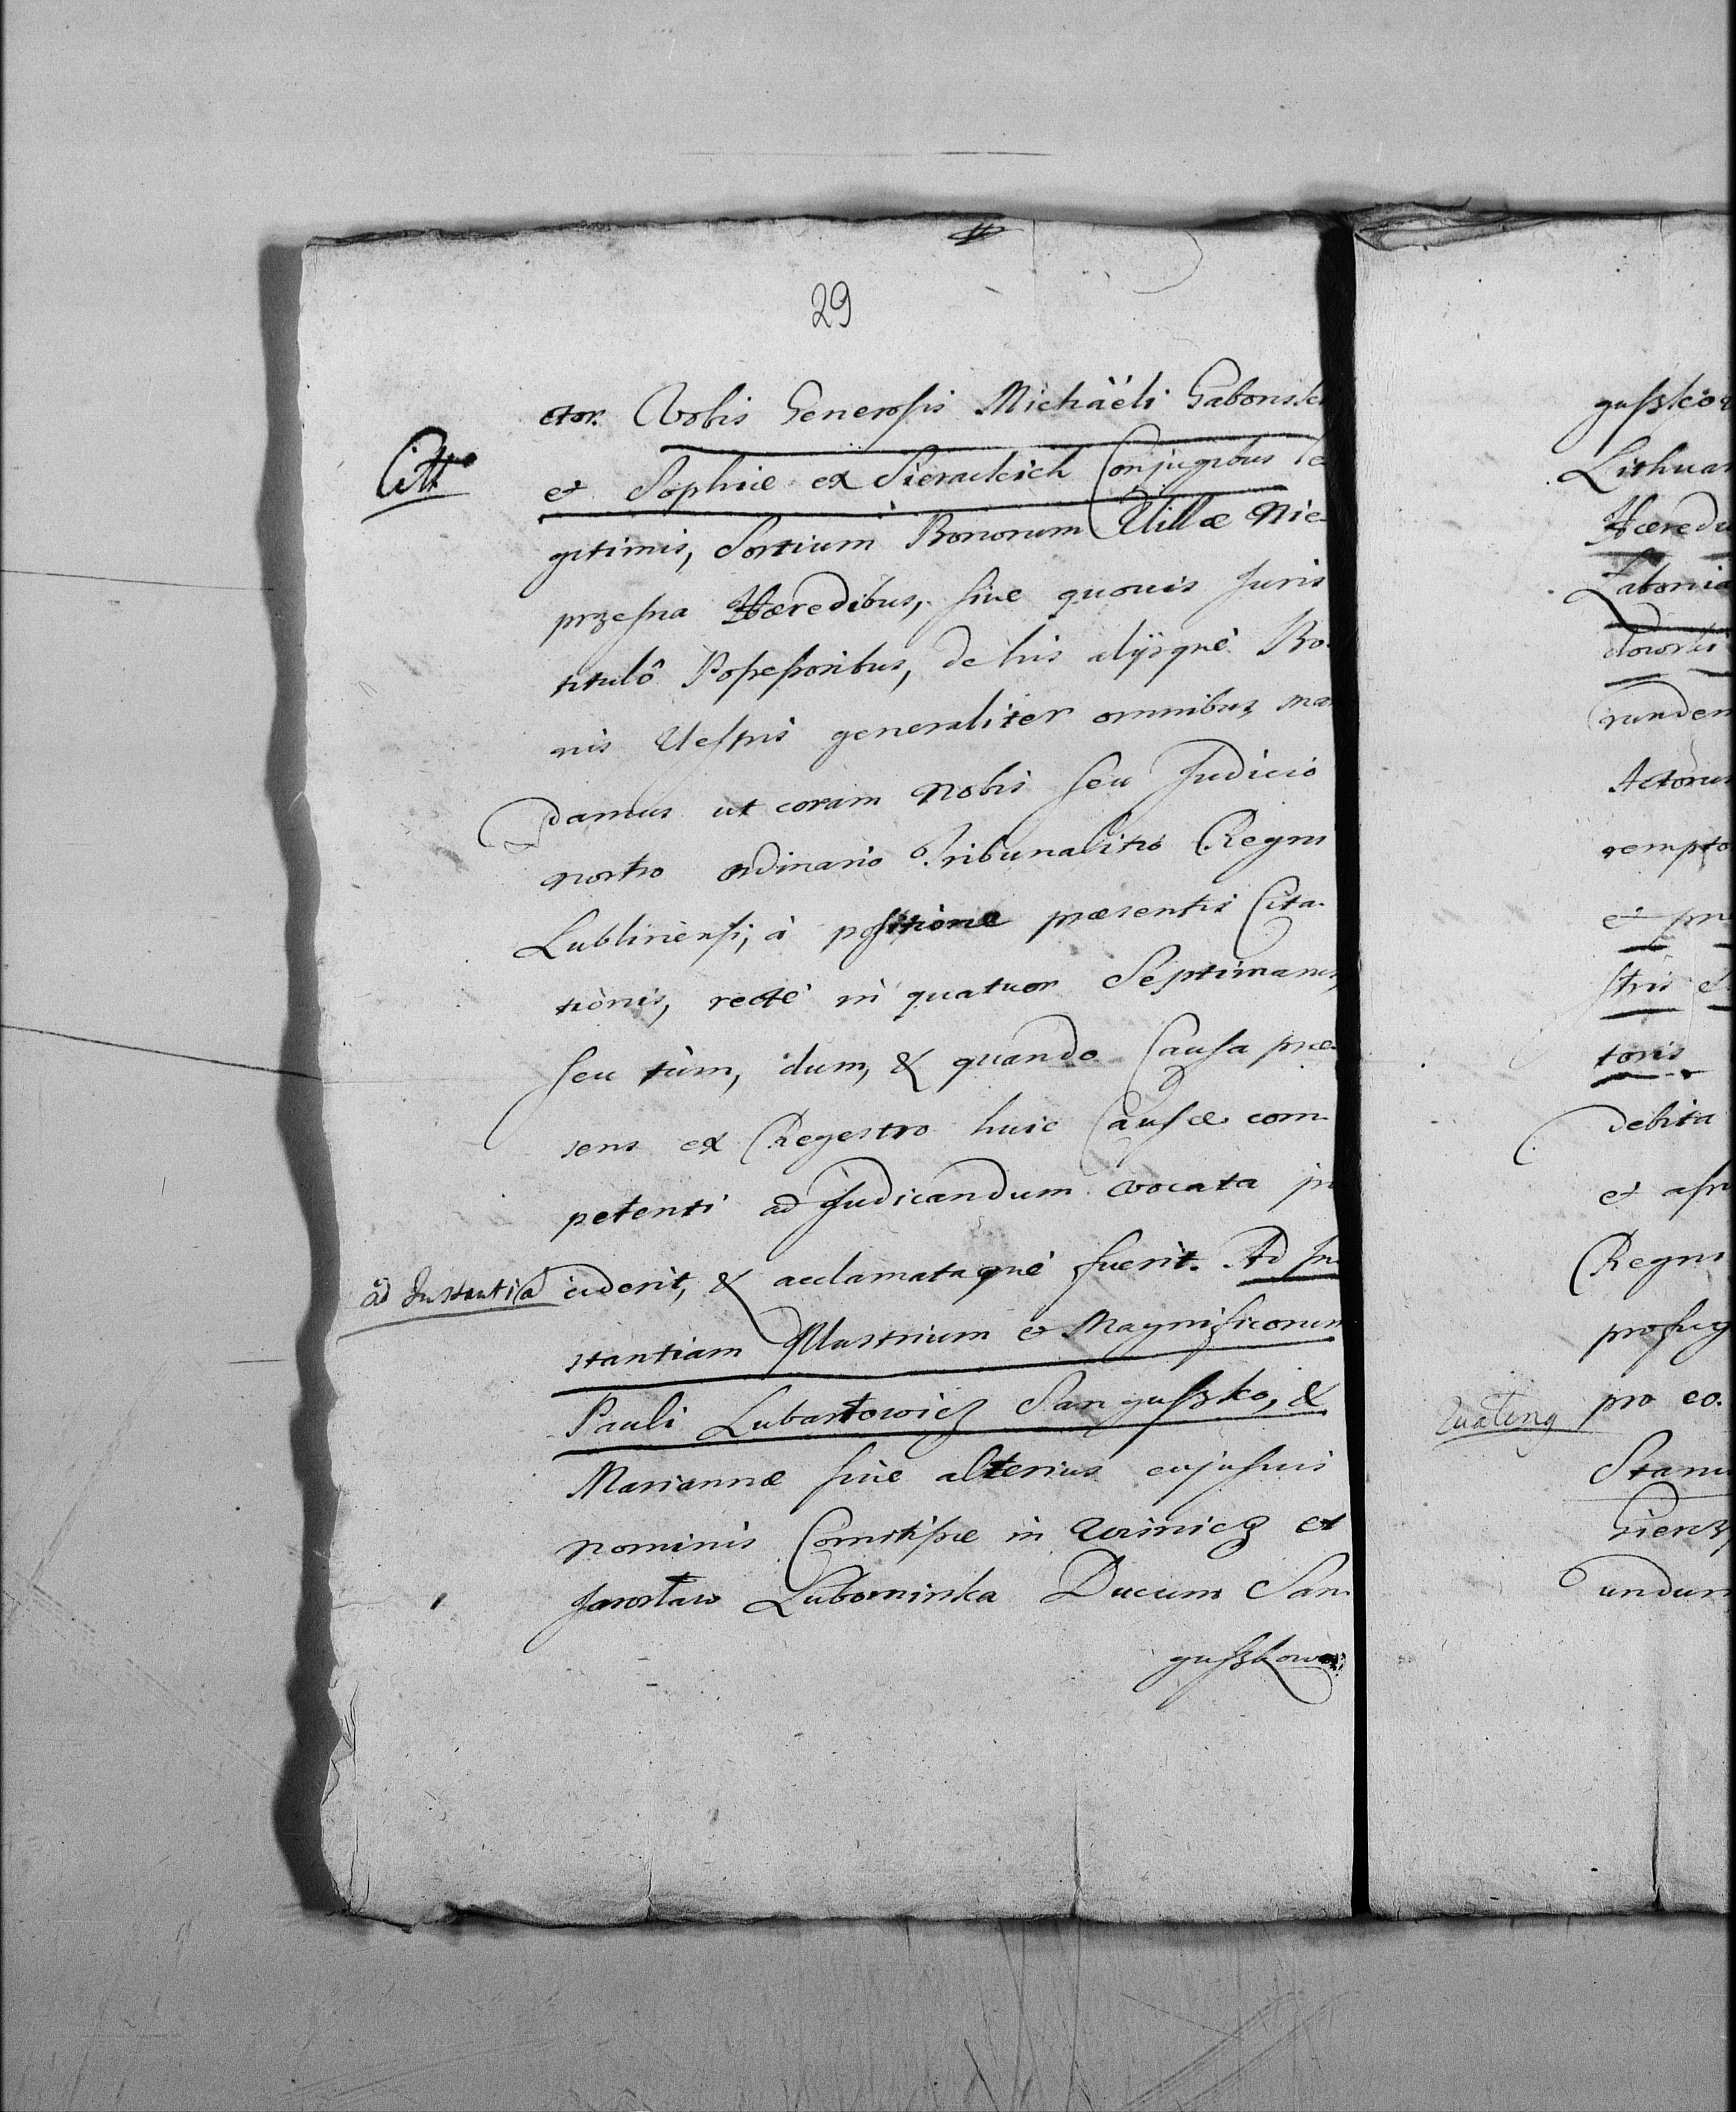 29
ctor. Vobis Generosis Michaëli Gabonski
Citt°
et Sophiæ ex Sierackich Conjugibus Le
gitimis, Sortium Bonorum Villæ Nie-
przesna Hæredibus, sive quovis Juris
titulô Possessoribus, de his alijsquè Bo-
nis Vestris generaliter omnibus, man
damus ut coram Nobis seu Judicio
nostro ordinario Tribunalitio Regni
Lublinensi, à positione præsentis Cita-
tionis, rectè in quatuor Septimanis,
seu tùm, dum, & quando Causa præ-
sens ex Regestro huic Causæ com-
petenti ad Judicandum vocata in
ad Instantia
ciderit, & acclamataquè fuerit. Ad In
stantiam Illustrium et Magnificorum
Pauli Lubartowicz Sanguszko, &
Mariannæ sive alterius cujusvis
nominis Comitissæ in Wisnicz et
Jarosław Lubomirska Ducum San-
guszkow
guszko
Lithuan
Hæredu
Zaboria
dowski
rundem
Actorum
rempto
et pr
stris
toris
debita
et ass
Regni
profug
pro eo.
Stani
undum